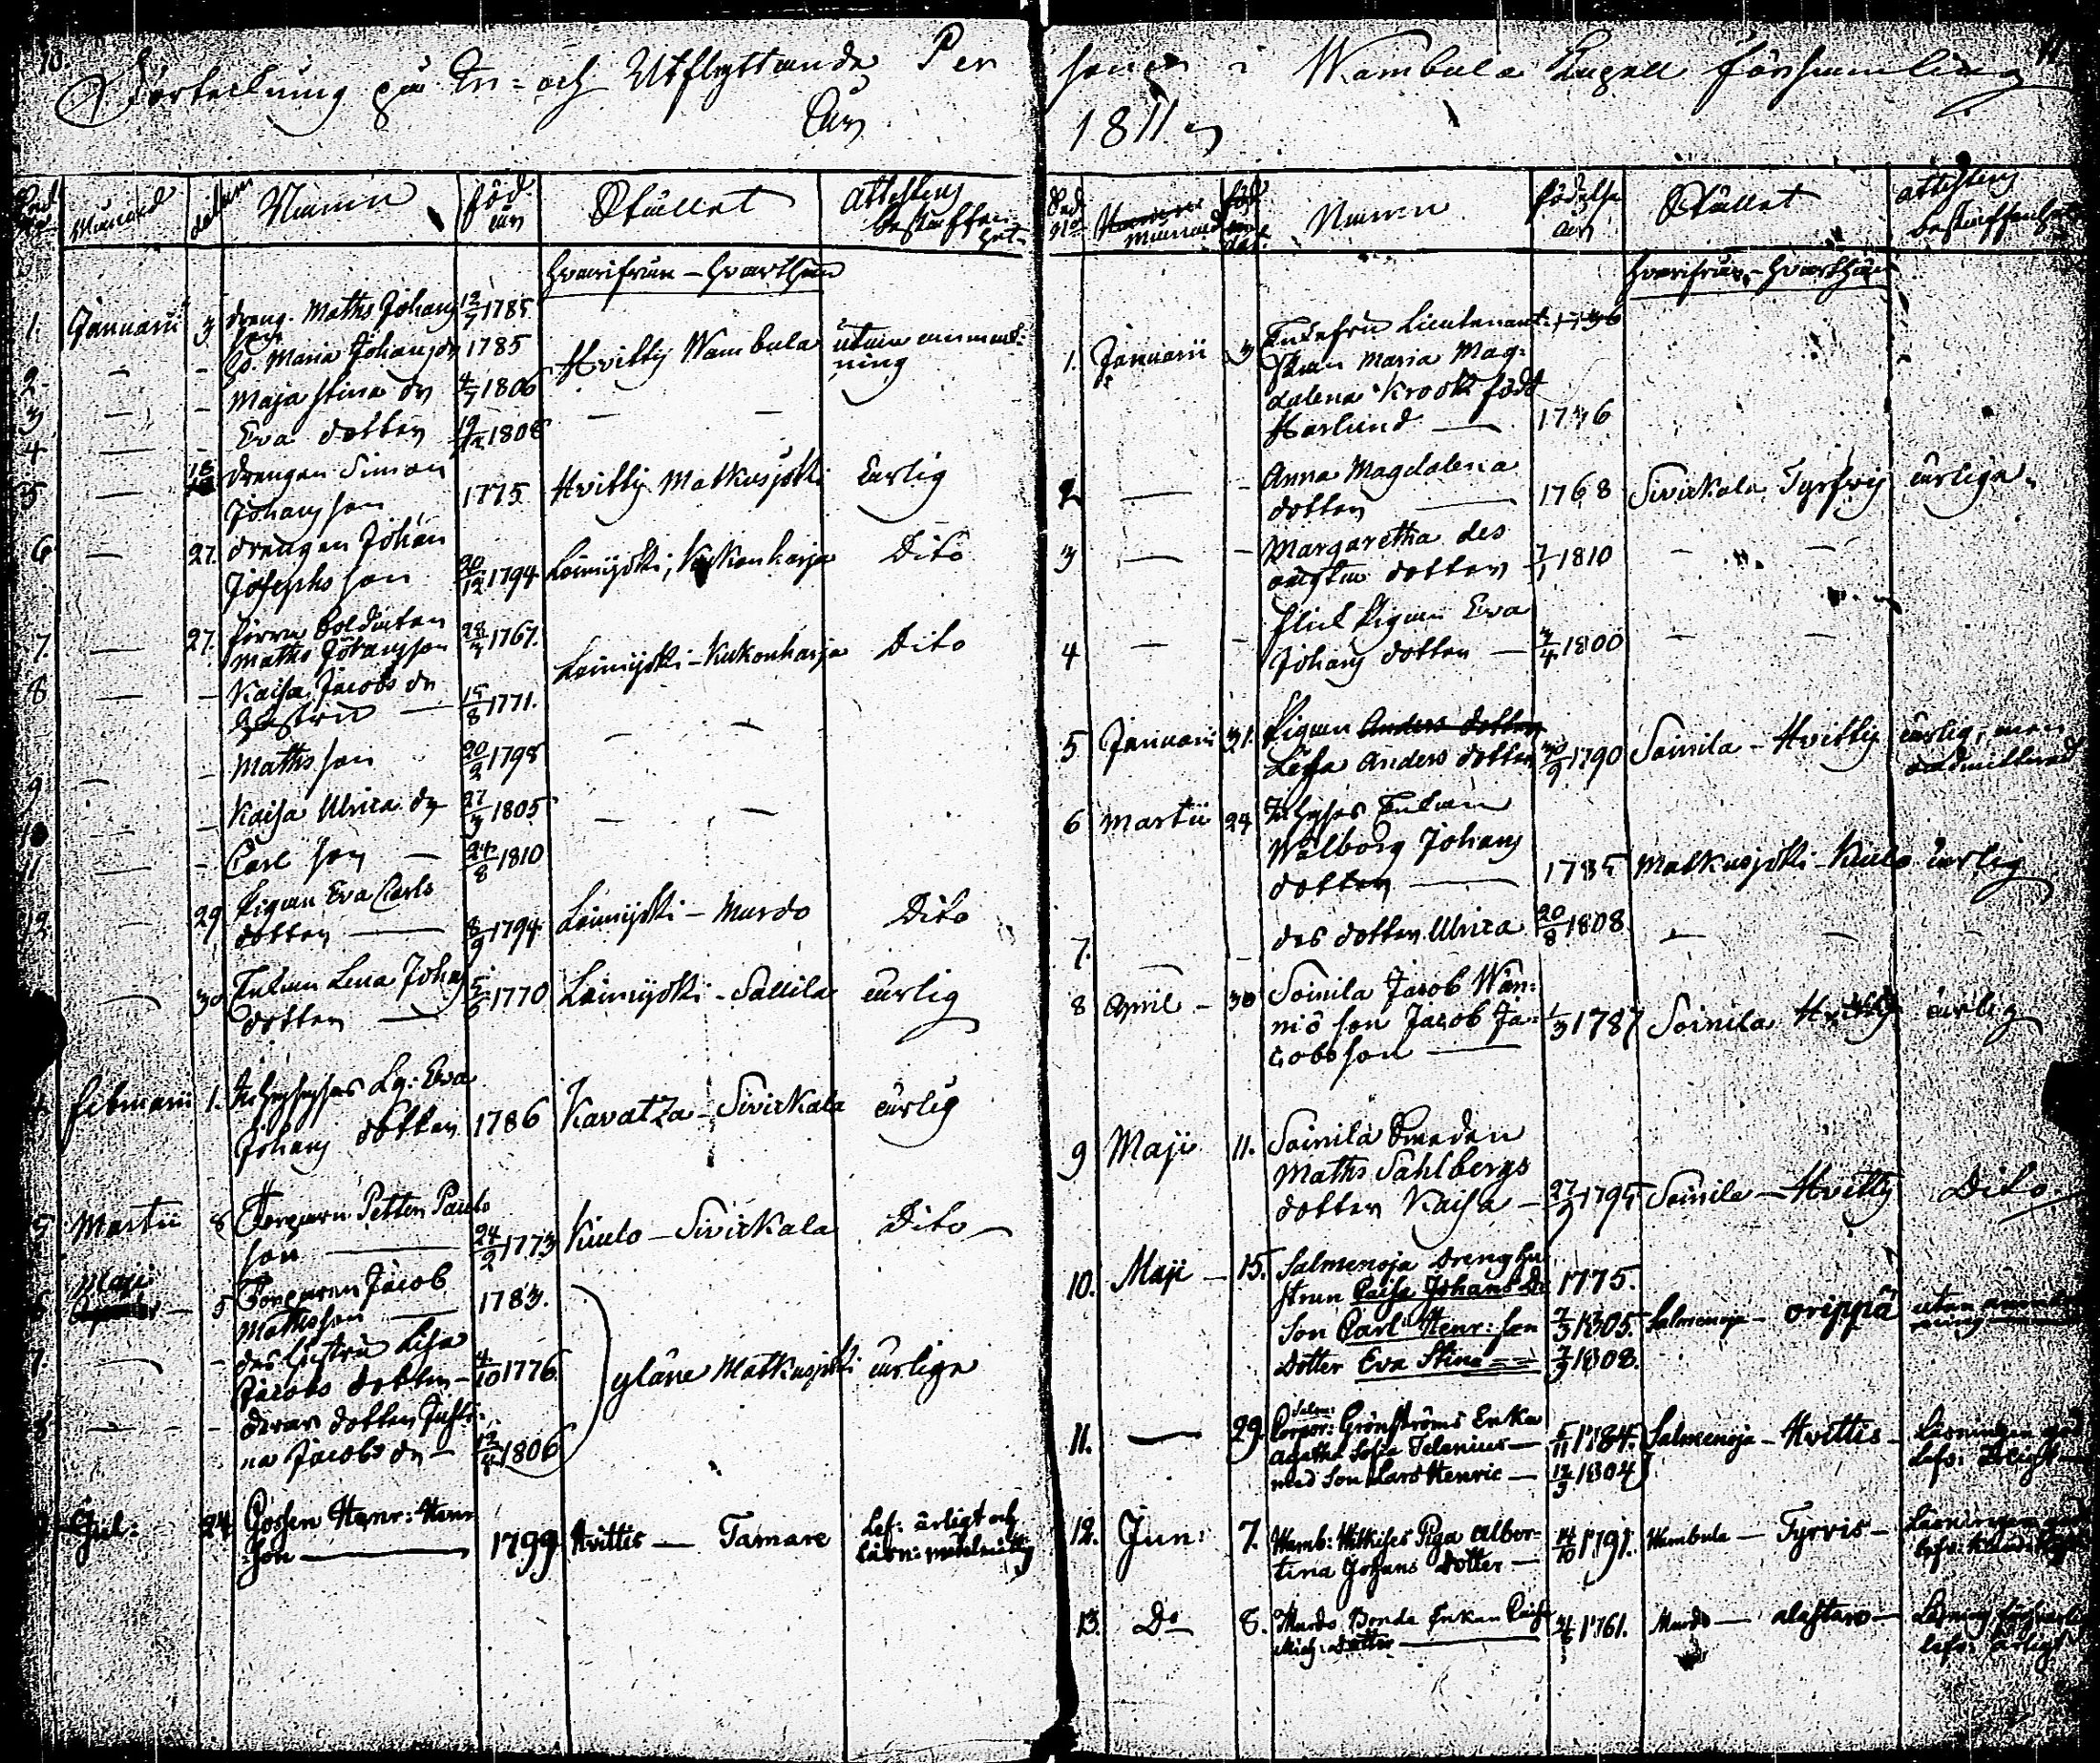 10
Förteckning på In- och Utflyttande Per
År
Månad Namn föd. år Stället Attestens beskaffenhet
hvarifrån - hvarthän
1. Januarii 3 dreng. Maths Johansson 12/7 1785
2 - - H. Maria Johansdr 1785 Hvittis Wambula utan anmärkning
3 - - Maja Stina dr 4/7 1806
4 - - Eva dotter 19/12 1808 - -
5 - 18 drengen Simon
Johansson 1775 Hvittis Matkusjoki ärlig
6 - 27. drengen Johan
Josephsson 20/12 1794 Loimijoki, Kirkonkarja Dito
7. - 27. förra Soldaten
Maths Johansson 28/ 1767. Loimijoki - Kukonharja Dito
8 - - Kaisa Jacobs dr
hustru - 15/8 1771.
9 - - Maths son 20/2 1798 - -
10 - - Kaisa Ulrica dr 27/3 1805 - -
11 - - Carl son - 24/8 1810
12 - 29 Pigan Eva Carls
dotter - 8/9 1794 Loimijoki - Murdo Dito
- 30 Enkan Lena Johans
dotter - 5/5 1770 Loimijoki - Sallila ärlig
Februarii 1. Eva
Johans dotter 1786 Kavatza - Sivickala ärlig
5 Martii 8 Torparn Petter Pauls
son - 24/2 1773 Kiulo - Sivickala Dito
Maji 5 Torparen Jacob
Mathsson - 1783.
7. - - des hustru Lisa
Jacobs dotter - 4/10 1776 yläne Matkusjoki ärliga
8 - - deras dotter Justi-
na Jacobs dr - 12/4 1806
Jul: 24 Gossen Henr: Henr
:son - 1799 Hvittis - Tamare Lef: ärligt och
läsn: medelmåttig
11
soner i Wambula Capell församling
1811
No Månad Namn födelse år Stället attestens beskaffenhet
hvarifrån - hvarthän
1. Januarii 3 Enkefru Lieutenant-
skan Maria Mag-
dalena Krook född
Harlund - 1746
2 - - Anna Magdalena
dotter - 1768 Sivickala Tyrfvis ärliga
3 - - Margaretha des
dotter 7/1 1810 - -
4 - - flick Pigan Eva
Johans dotter - 3/4 1800 - -
5 Januari 31. Pigan Anders dotter
Lisa Anders dotter 30/9 1790 Soinila - Hvittis ärlig, men
oadmitterad
6 Martii 24 Inhyses Enkan
Walborg Johans
dotter - 1785 Matkusjoki - Kiulo ärlig
7. - - des dotter Ulrica 20/8 1808 - - -
8 April - 30 Soinila Jacob Wän-
niö son Jacob Ja-
cobsson - 1/3 1787 Soinila Hvittis ärlig
9 Maji 11. Soinila Smeden
Maths Sahlbergs
dotter Kaisa - 27/ 1795 Soinila - Hvittis Dito
10. Maji - 15. Salmenoja Drenghu
strun Caisa Johans Dr 1775.
Son Carl Henr: son 7/3 1805. Salmenoja - orippä utan anmärkning
Dotter Eva Stina 7/3 1808.
11. - 29. Salm:
Corpor: Grönströms Enka
Agatha Sofia Telenius - 5/11 1784. Salmenoja - Hvittis - Läsningen god
med Son Lars Henric - 12/3 1804
12. Jun: 7. Wamb: Witkises Piga Alber-
tina Johans Dotter - 14/10 1791. Wambula - Tyrvis - Läsningen
13. Do 8. Murdo Bonde Enkan Caisa
Mich: dotter - 1761. Murdo - alastaro - Läsning försvarlig
lefv: ärligt